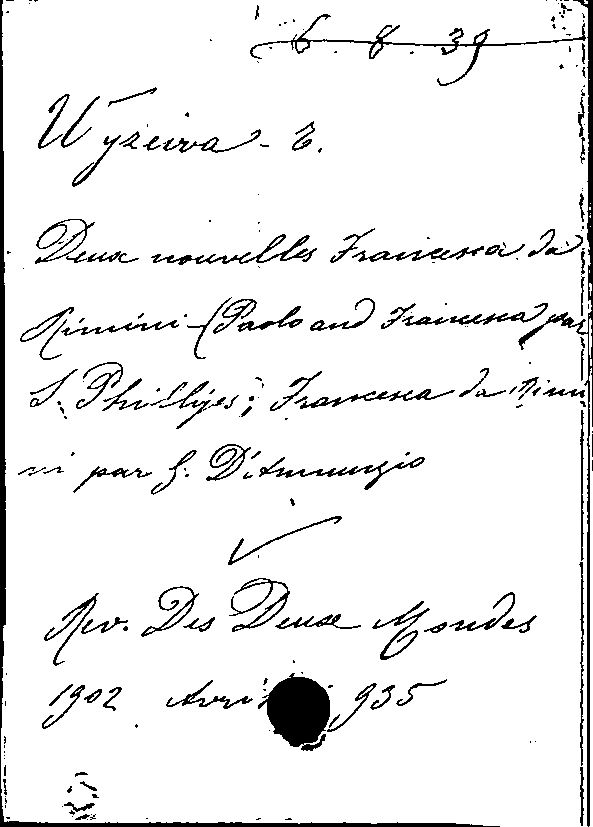 6. 8. 39
Wyzeiva - E.
Deux nouvelles Francesca da
Rimini - (Paolo and Francesca par
S. Phillyes; Francesca da Rimi
ni par G. D'Annunzio
Rev. Des Deux Mondes
1902 Avril 935